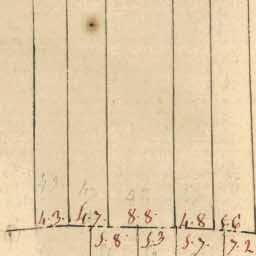 4.3. 4.7 8.8. 4.8 5.6
5.8. 5.3 5.7. 7.2